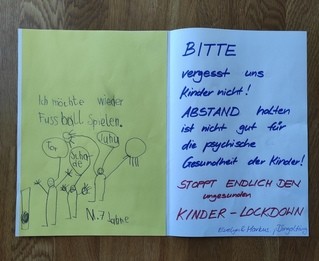 Ich möchte wieder
Fussball spielen.
Tor
Schade
Juhu
M. 7 Jahre
BITTE
vergesst uns
Kinder nicht!
ABSTAND halten
ist nicht gut für
die psychische
Gesundheit der Kinder!
STOPPT ENDLICH DEN
ungesunden
KINDER-LOCKDOWN